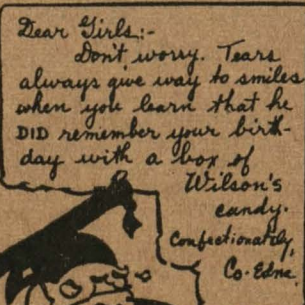 Dear Girls:-
Don't worry. Tears
always give way to smiles
when you learn that he
DID remember your birth-
day with a box of
Wilson's
candy.
Confectionately,
Co-Edna.